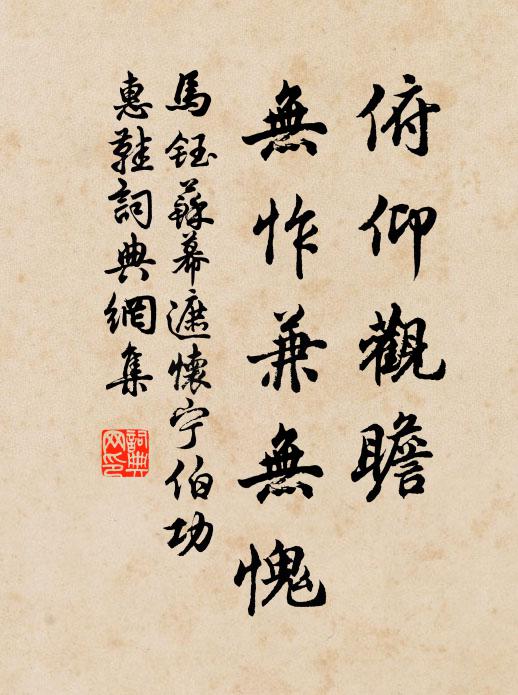 俯仰觀瞻
無怍兼無愧
馬鈺蘇幕遮懷宁伯功
惠鞋詞典網集
詞典网印